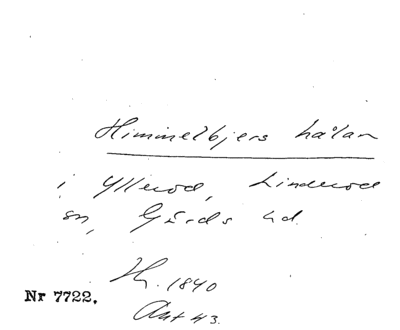 Himmelbjers hålan
i Yllerod, Linderod
sn, Gärds hd.
H. 1840
Nr 7722.
Ant 43.